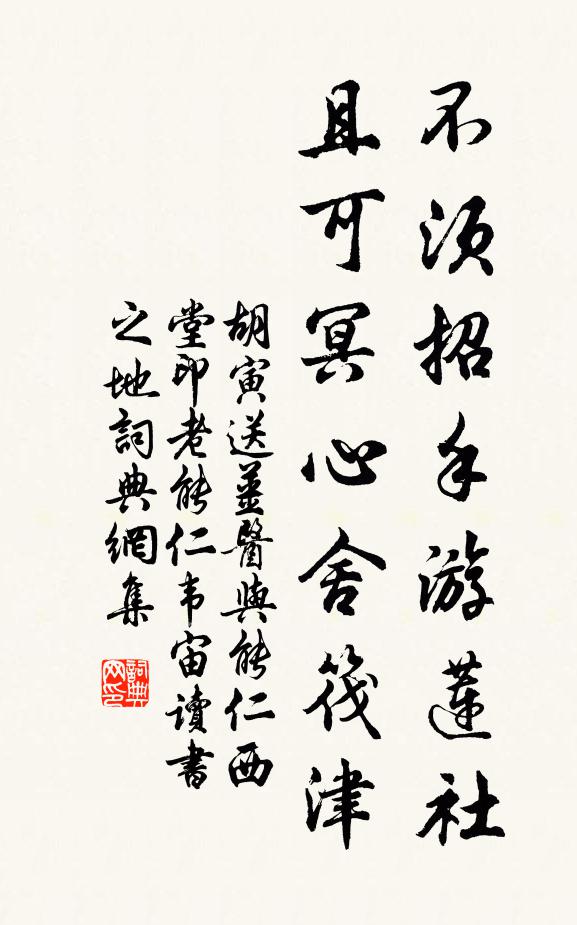 不須招手游蓮社
且可冥心舍筏津
胡寅送薑醫與能仁西
堂印老能仁韦宙讀書
之地詞典網集
詞典网印